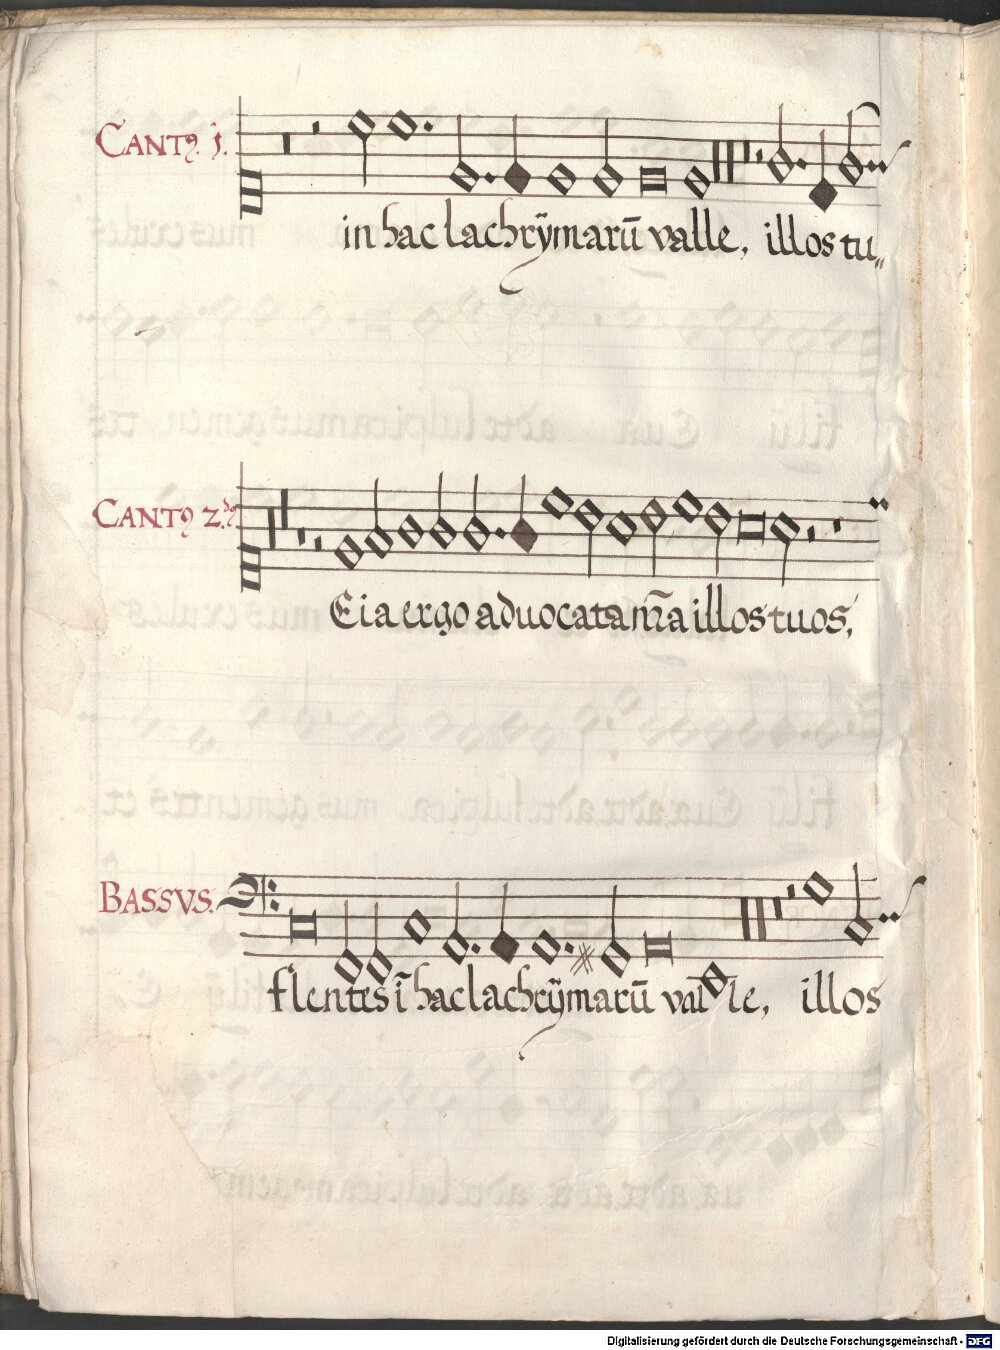 CANTꝰ. j.
in hac lachrÿmarū valle, illos tu„
CANTꝰ 2.dꝰ
Eia ergo aduocata nr̃a illos tuos,
BASSVS.
flentes ī hac lachrÿmarū valle, illos
Digitalisierung gefördert durch die Deutsche Forschungsgemeinschaft - DFG